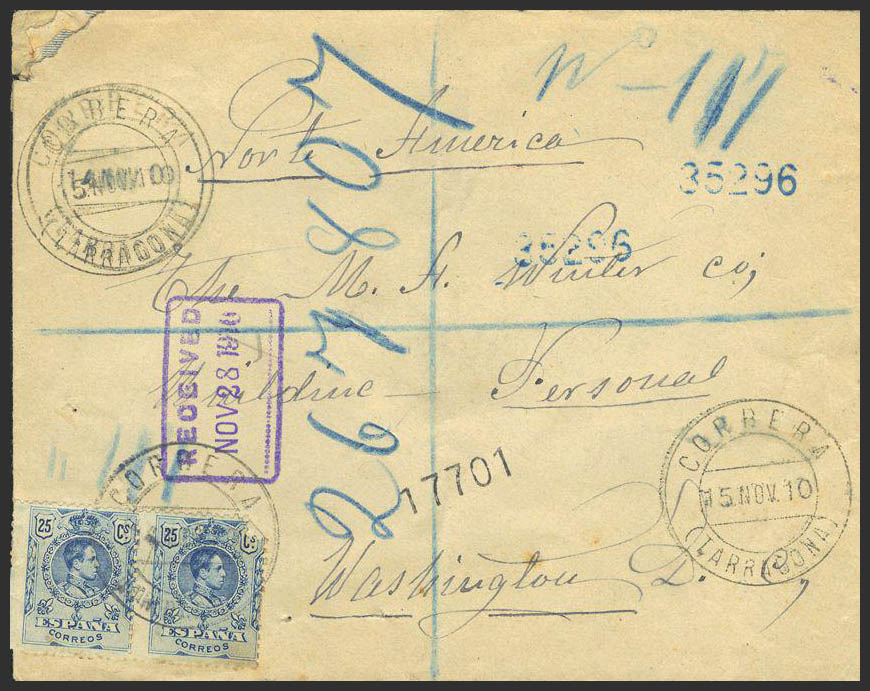 Nº - 117
CORBERA
15.NOV.10
(TARRAGONA)
North America
35296
35296
The M. A. Winter Co;
RECEIVED
NOV 28 1910
Personal
267807
17701
CORBERA
15.NOV.10
(TARRAGONA)
CORBERA
Washington D.
25 Cs
ESPAÑA
CORREOS
25 Cs
ESPAÑA
CORREOS